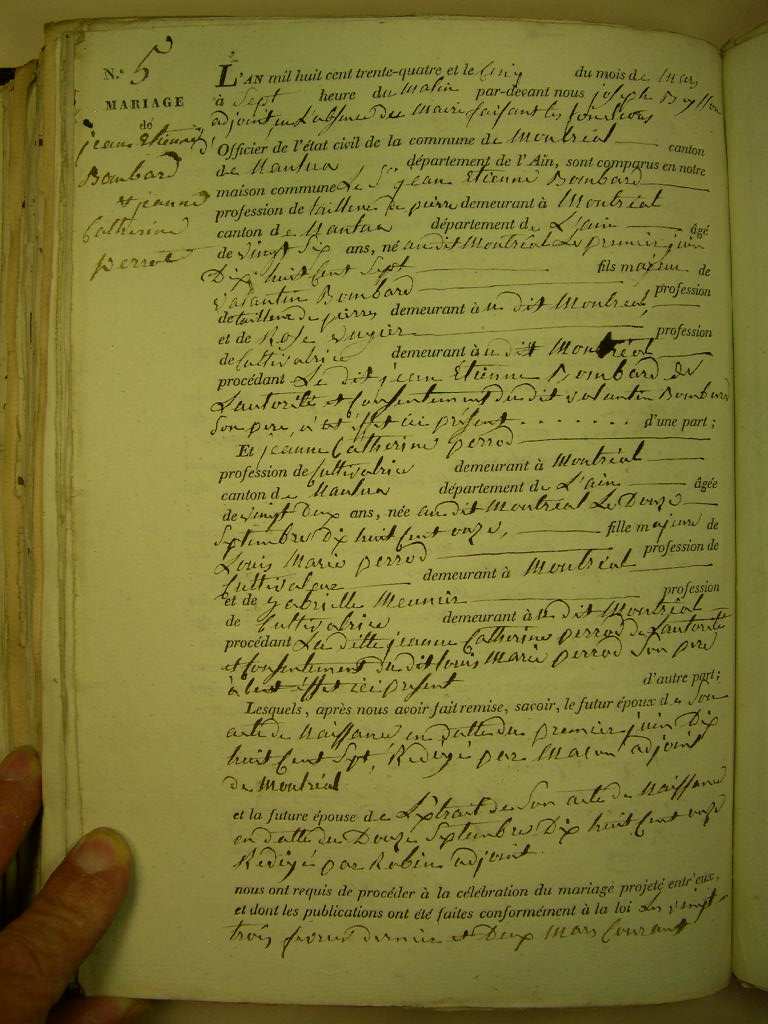 N.° 5
MARIAGE
de
jeane Etienne
Bombard
et jeanne
Catherine
perrod
L'AN mil huit cent trente-quatre et le Cinq du mois de Mars
à Sept heure du Matin par-devant nous joseph
adjoint en L'absence du Maire faisant les fonctions
d'Officier de l'état civil de la commune de Montréal canton
de Nantua département de l'Ain, sont comparus en notre
maison commune Le Sr jeane Etienne Bombard
profession de tailleur de pierre demeurant à Montréal
canton de Nantua département de L'ain âgé
de vingt six ans, né au dit Montréal Le premier juin
Dix huit Cent Sept fils majeur de
valantin Bombard profession
de tailleur de pierres demeurant à u dit Montréal,
et de Rose profession
de Cultivatrice demeurant à u dit Montréal
procédant Le dit jeane Etienne Bombard de
L'autorité et Consentement du dit valantin Bombard
Son pere, à cet effet ici présent d'une part;
Et jeanne Catherine perrod
profession de Cultivatrice demeurant à Montréal
canton de Nantua département de L'ain âgée
de vingt Deux ans, née au dit Montréal Le Douze
Septembre Dix huit Cent onze, fille majeure de
Louis Marie perrod profession de
Cultivateur demeurant à Montréal
et de gabrielle Meunier profession
de Cultivatrice demeurant à u dit Montréal
procédant La ditte jeanne Catherine perrod de L'autorité
et Consentement du dit Louis Marie perrod Son pere
à cet effet ici présent d'autre part;
Lesquels, après nous avoir fait remise, savoir, le futur époux de Son
acte de Naissance en datte du premier juin Dix
huit Cent Sept, Rédigé par Macon adjoint
de Montréal
et la future épouse de L'Extrait de Son acte de Naissance
en datte du Douze Septembre Dix huit Cent onze
Rédigé par Robin adjoint.
nous ont requis de procéder à la célébration du mariage projeté entr'eux,
et dont les publications ont été faites conformément à la loi les vingt
trois fevrier dernier et Deux Mars Courant